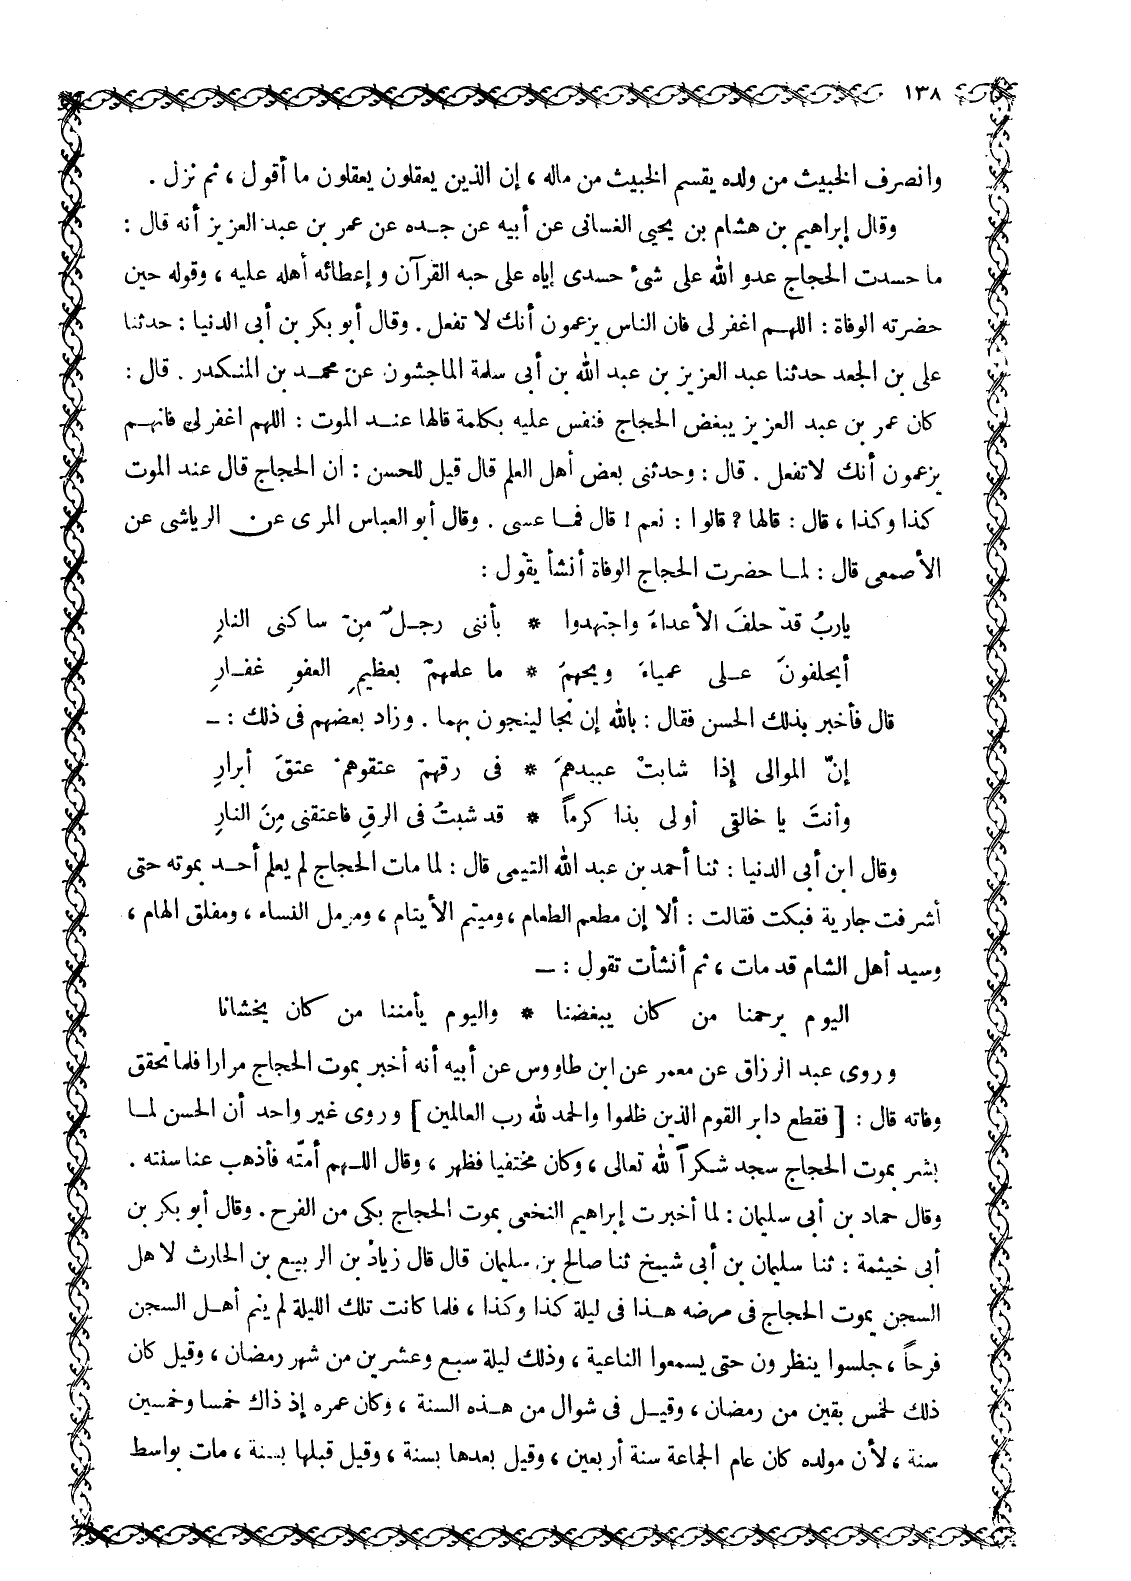 ١٣٨
وانصرف الخبيث من ولده يقسم الخبيث من ماله ، إن الذين يعقلون يعقلون ما أقول ، ثم نزل .
وقال إبراهيم بن هشام بن يحيى الغسانى عن أبيه عن جده عن عمر بن عبد العزيز أنه قال :
ما حسدت الحجاج عدو الله على شىء حسدى إياه على حبه القرآن و إعطائه أهله عليه ، وقوله حين
حضرته الوفاة : اللهم اغفر لى فان الناس يزعمون أنك لا تفعل . وقال أبو بكر بن أبى الدنيا : حدثنا
على بن الجعد حدثنا عبد العزيز بن عبد الله بن أبى سلمة الماجشون عن محمد بن المنكدر . قال :
كان عمر بن عبد العزيز يبغض الحجاج فنفس عليه بكلمة قالها عند الموت : اللهم اغفر لى فانهم
يزعمون أنك لا تفعل . قال : وحدثنى بعض أهل العلم قال قيل للحسن : ان الحجاج قال عند الموت
كذا وكذا ، قال : قالها ؟ قالوا : نعم ! قال فما عسى . وقال أبو العباس المرى عن الرياشى عن
الأصمعى قال : لما حضرت الحجاج الوفاة أنشأ يقول :
ياربُ قدْ حلفَ الأعداءَ واجتهدوا * بأننى رجلٌ منْ ساكنى النارِ
أيحلفونَ على عمياءَ ويحهمُ * ما علمهمْ بعظيمِ العفوِ غفارِ
قال فأخبر بذلك الحسن فقال : بالله إن نجا لينجون بهما . وزاد بعضهم فى ذلك : ـ
إنّ الموالى إذا شابتْ عبيدهمَ * فى رقهمْ عتقوهمْ عتقَ أبرارِ
وأنتَ يا خالقى أولى بذا كرماً * قد شبتُ فى الرقِ فاعتقنى منَ النارِ
وقال ابن أبى الدنيا : ثنا أحمد بن عبد الله التيمى قال : لما مات الحجاج لم يعلم أحد بموته حتى
أشرفت جارية فبكت فقالت : ألا إن مطعم الطعام ، وميتم الأيتام ، ومرمل النساء ، ومفلق الهام ،
وسيد أهل الشام قد مات ، ثم أنشأت تقول : ـ
اليوم يرحمنا من كان يبغضنا * واليوم يأمننا من كان يخشانا
وروى عبد الرزاق عن معمر عن ابن طاووس عن أبيه أنه أخبر بموت الحجاج مرارا فلما تحقق
وفاته قال : [ فقطع دابر القوم الذين ظلموا والحمد لله رب العالمين ] وروى غير واحد أن الحسن لما
بشر بموت الحجاج سجد شكراً لله تعالى ، وكان مختفيا فظهر ، وقال اللهم أمتّه فأذهب عنا سنته .
وقال حماد بن أبى سليمان : لما أخبرت إبراهيم النخعى بموت الحجاج بكى من الفرح . وقال أبو بكر بن
أبى خيثمة : ثنا سليمان بن أبى شيخ ثنا صالح بن سليمان قال قال زياد بن الربيع بن الحارث لاهل
السجن يموت الحجاج فى مرضه هذا فى ليلة كذا وكذا ، فلما كانت تلك الليلة لم ينم أهل السجن
فرحاً ، جلسوا ينظرون حتى يسمعوا الناعية ، وذلك ليلة سبع وعشرين من شهر رمضان ، وقيل كان
ذلك لخمس بقين من رمضان ، وقيل فى شوال من هذه السنة ، وكان عمره إذ ذاك خمسا وخمسين
سنة ، لأن مولده كان عام الجماعة سنة أربعين ، وقيل بعدها بسنة ، وقيل قبلها بسنة ، مات بواسط